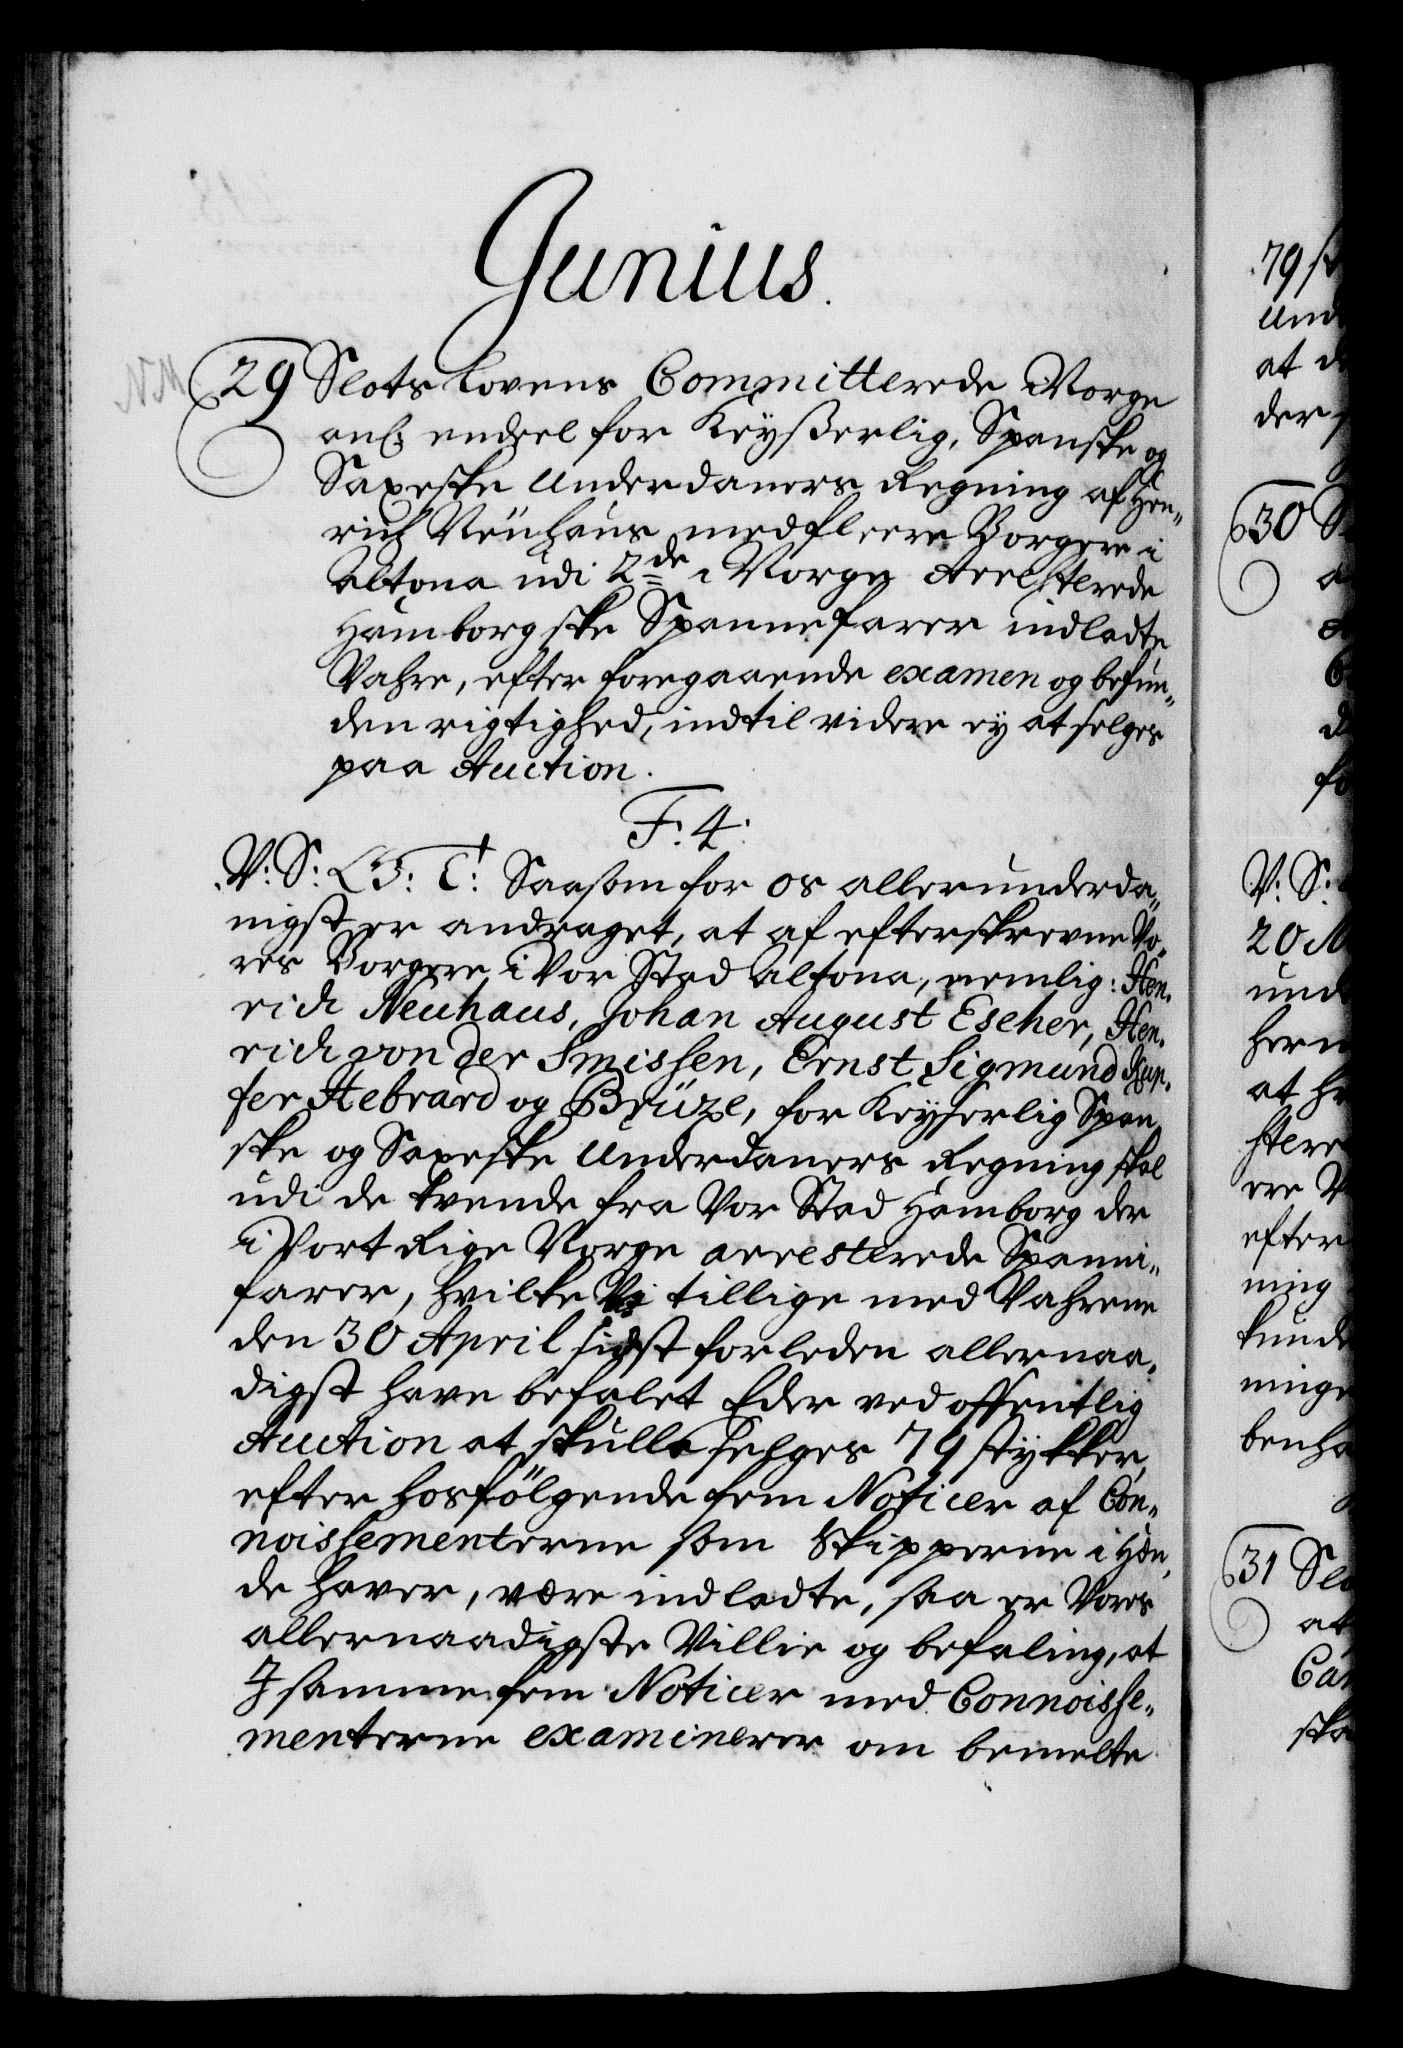 Junius.
29 Slots Lovens Committerede i Norge
anl: endeel for Keyßerlig, Spanske og
Saxeske Underdaners Regning af Hen„
rich Neühaus med fleere Borgere i
Altona udi 2de i Norge Arresterede
Hamborgske Spannefarer indladte
Vahre, efter foregaaende examen og befun„
den rigtighed, indtil videre ey at selges
paa Auction.
F: 4.
V: S: G: T: Saasom for os allerunderda„
nigst er andraget, at af efterskrevne Vo„
res Borgere i Vor Stad Altona, nemlig: Hen„
rich Neuhaus, Johan August Escher, Hen„
rich von der Smissen, Ernst Sigmund
Hebrard og Brüze, for Keyserlig Span„
ske og Saxeske Underdaners Regning skal
udi de tvende fra Vor Stad Hamborg der
i Vort Rige Norge arresterede Spanni„
farer, hvilke Vi tillige med Vahrene
den 30 April sidst forleden allernaa„
digst have befalet Eder ved offentlig
Auction at skulle selges 79 stykker,
efter hosfölgende fem Noticer af Con„
noissementerne som Skipperne i Hæn„
de haver, være indladte, saa er Vores
allernaadigste Villie og befaling, at
I samme fem Noticer med Connoisse„
menterne examinerer om bemelte
79 st
und
at d
der
30 S
V. S:
20 M
und
hern
at
stere
ere V
efter
ning
kunde
ninge
benha
31 Slo
at
Cam
ska